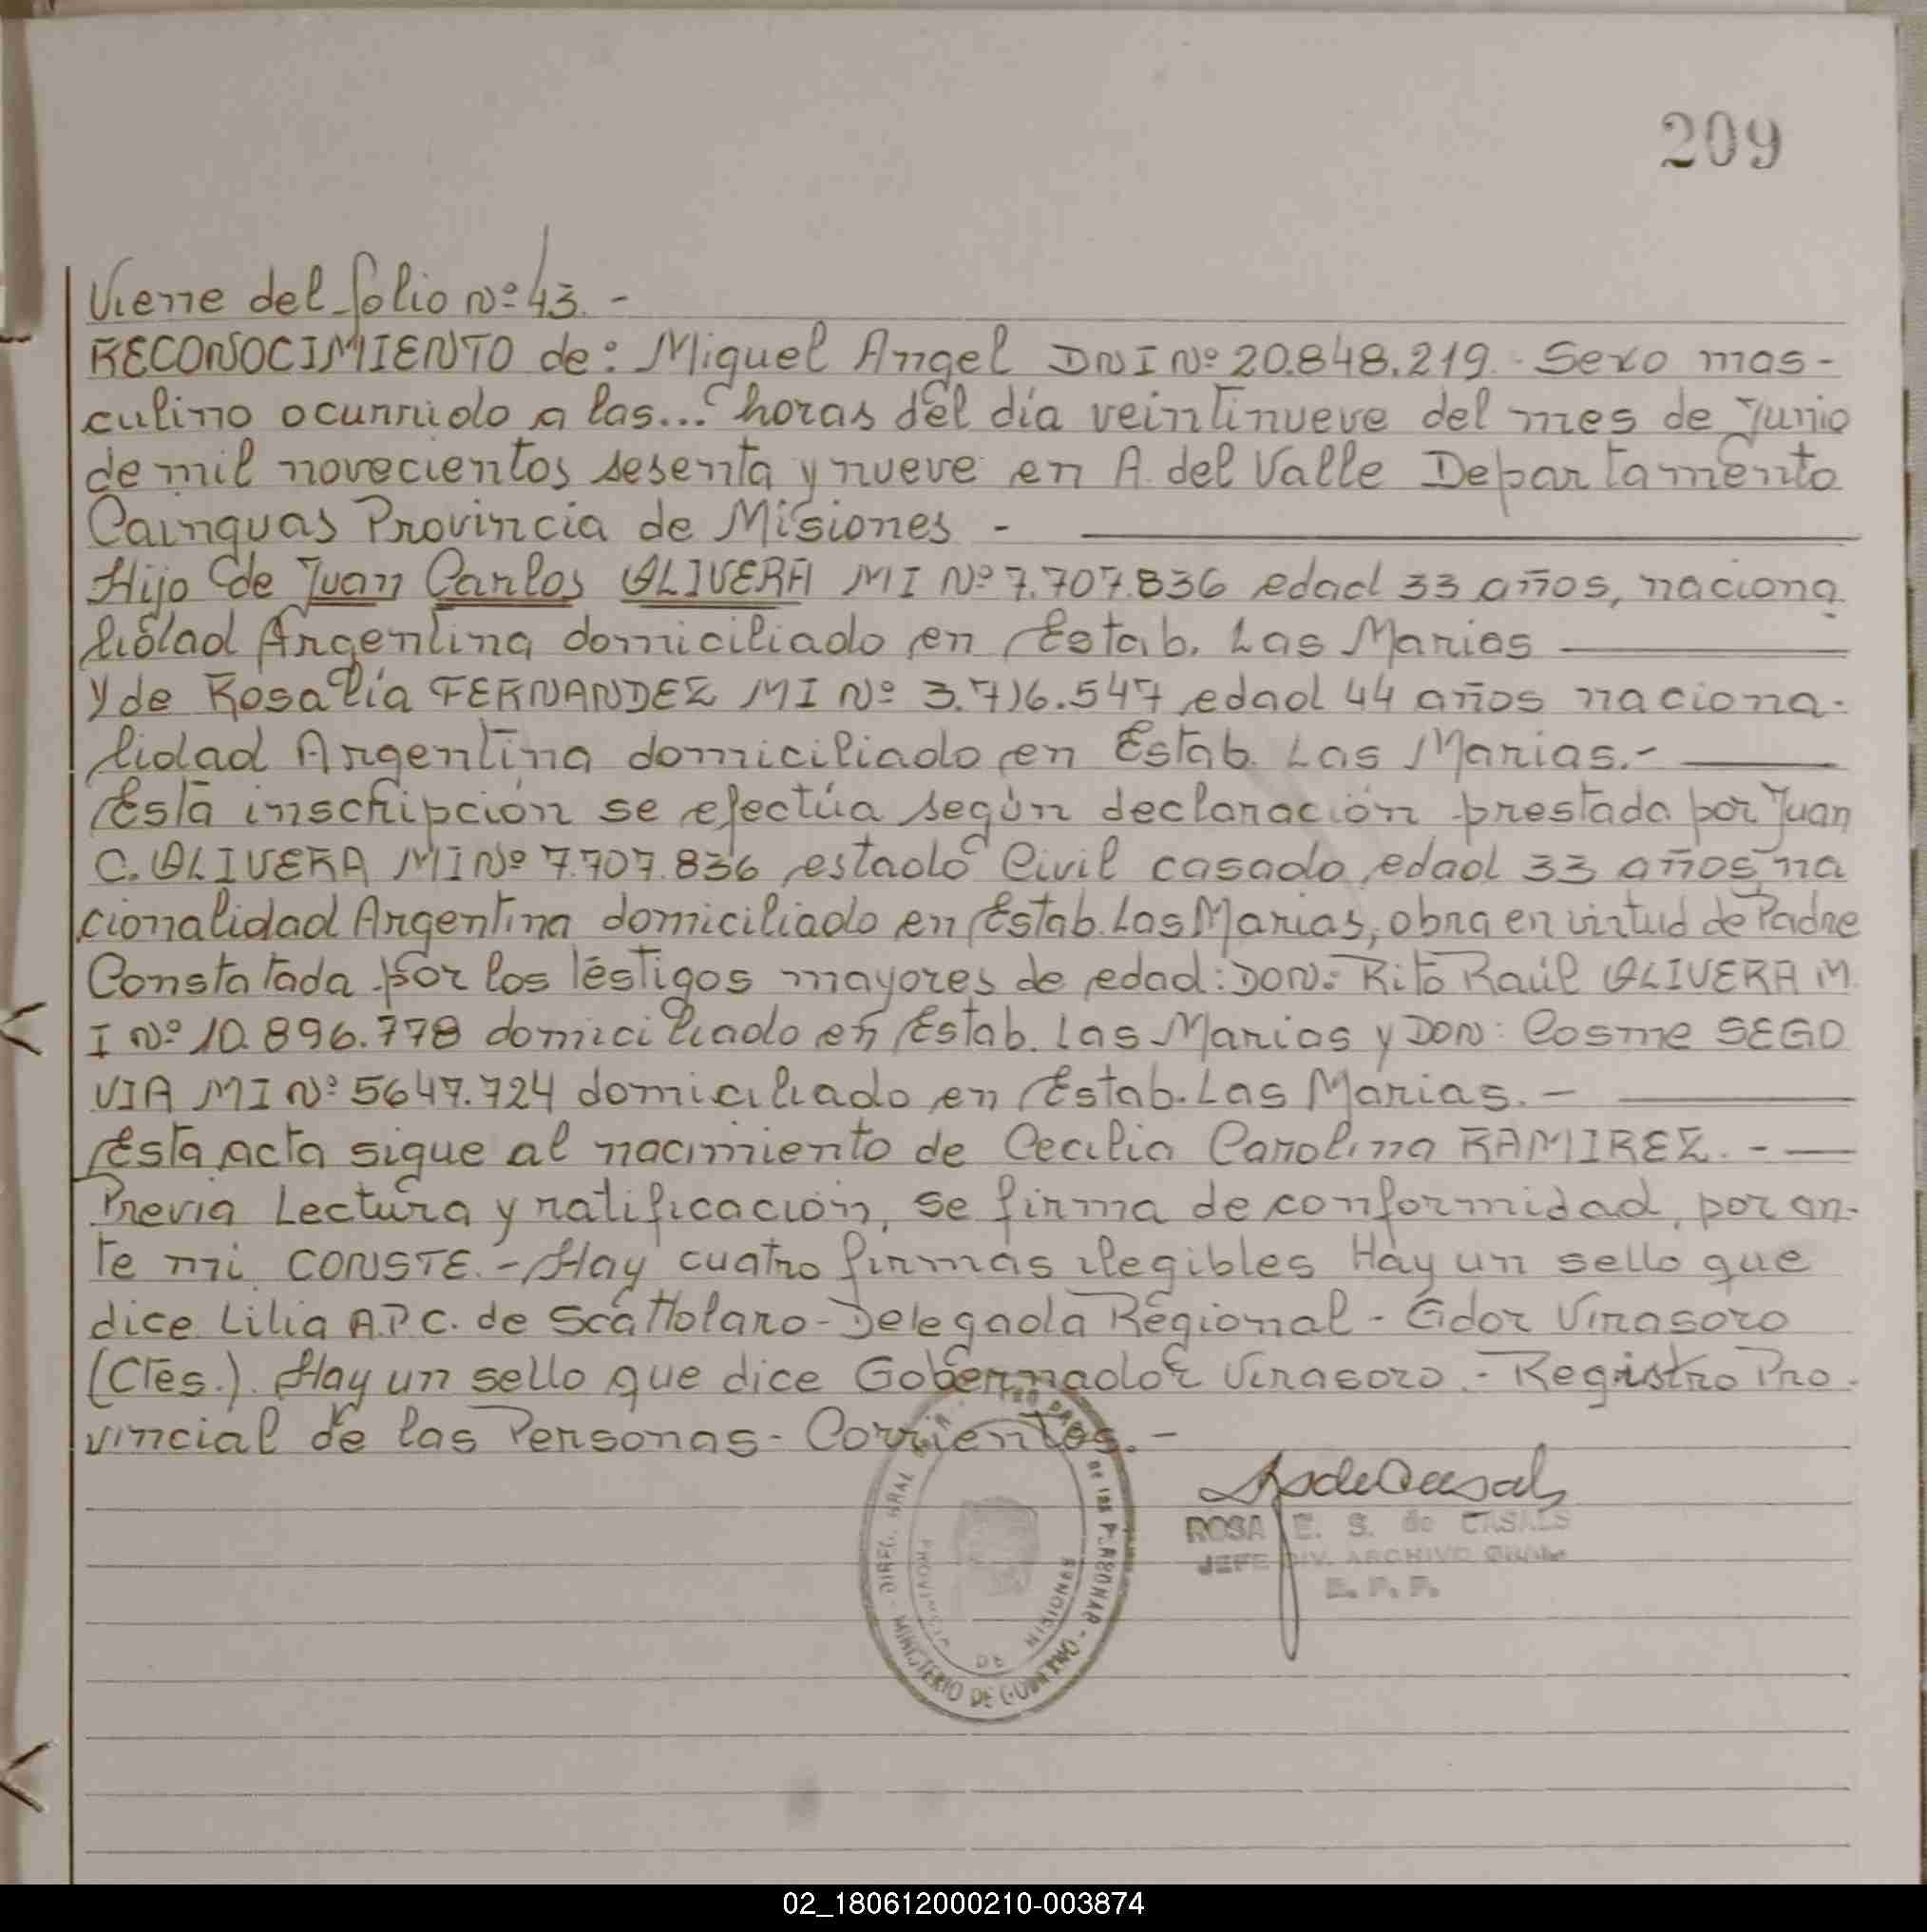 209
Viene del folio Nº 43.-
RECONOCIMIENTO de: Miguel Angel DNI Nº 20.848.219.- Sexo mas-
culino ocurrido a las... horas del día veintinueve del mes de Junio
de mil novecientos sesenta y nueve en A. del Valle Departamento
Cainguas Provincia de Misiones -
Hijo de Juan Carlos OLIVERA MI Nº 7.707.836 edad 33 años, naciona
lidad Argentina domiciliado en Estab. Las Marias
y de Rosalía FERNANDEZ MI Nº 3.716.547 edad 44 años naciona-
lidad Argentina domiciliado en Estab. Las Marias.-
Esta inscripción se efectúa según declaración prestada por Juan
C. OLIVERA MI Nº 7.707.836 estado Civil casado edad 33 años na
cionalidad Argentina domiciliado en Estab. Las Marias, obra en virtud de Padre
Constatada por los testigos mayores de edad: DON: Rito Raúl OLIVERA M.
I Nº 10.896.778 domiciliado en Estab. Las Marias y DON: Cosme SEGO
VIA MI Nº 5647.724 domiciliado en Estab. Las Marias.-
Esta acta sigue al nacimiento de Cecilia Carolina RAMIREZ.-
Previa Lectura y ratificación, se firma de conformidad, por an-
te mi CONSTE.- Hay cuatro firmas ilegibles Hay un sello que
dice Lilia A.P.C. de Scattolaro - Delegada Regional - Gdor Virasoro
(Ctes.). Hay un sello que dice Gobernador Virasoro.- Registro Pro-
vincial de las Personas - Corrientes.-
ROSA E. S. de CASALS
JEFE DIV. ARCHIVO GRAL.
DIREC. GRAL DE LAS PERSONAS - MINISTERIO DE GOBIERNO
PROVINCIA DE MISIONES
02_180612000210-003874